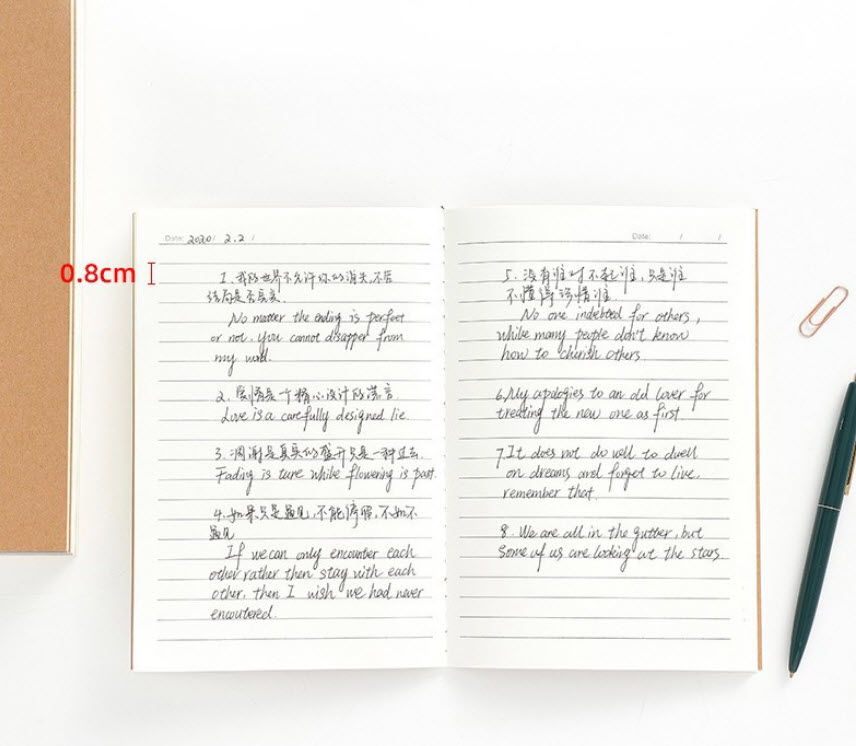 0.8cm
Date: 2020 / 2.2 /
1. 我的世界不允许你的消失,不管
结局是否完美.
No matter the ending is perfect
or not, you cannot disapper from
my world.
2. 爱情是一个精心设计的谎言.
Love is a carefully designed lie.
3. 凋谢是真实的盛开只是一种过去.
Fading is ture while flowering is past.
4. 如果只是遇见,不能停留,不如不
遇见
If we can only encounter each
other rather then stay with each
other, then I wish we had never
encoutered.
Date: / /
5. 没有谁对不起谁,只是谁
不懂得珍惜谁.
No one indebted for others,
while many people don't know
how to cherish others.
6. My apologies to an old lover for
treating the new one as first.
7 It does not do well to dwell
on dreams and forget to live,
remember that.
8. We are all in the gutter, but
some of us are looking at the stars.